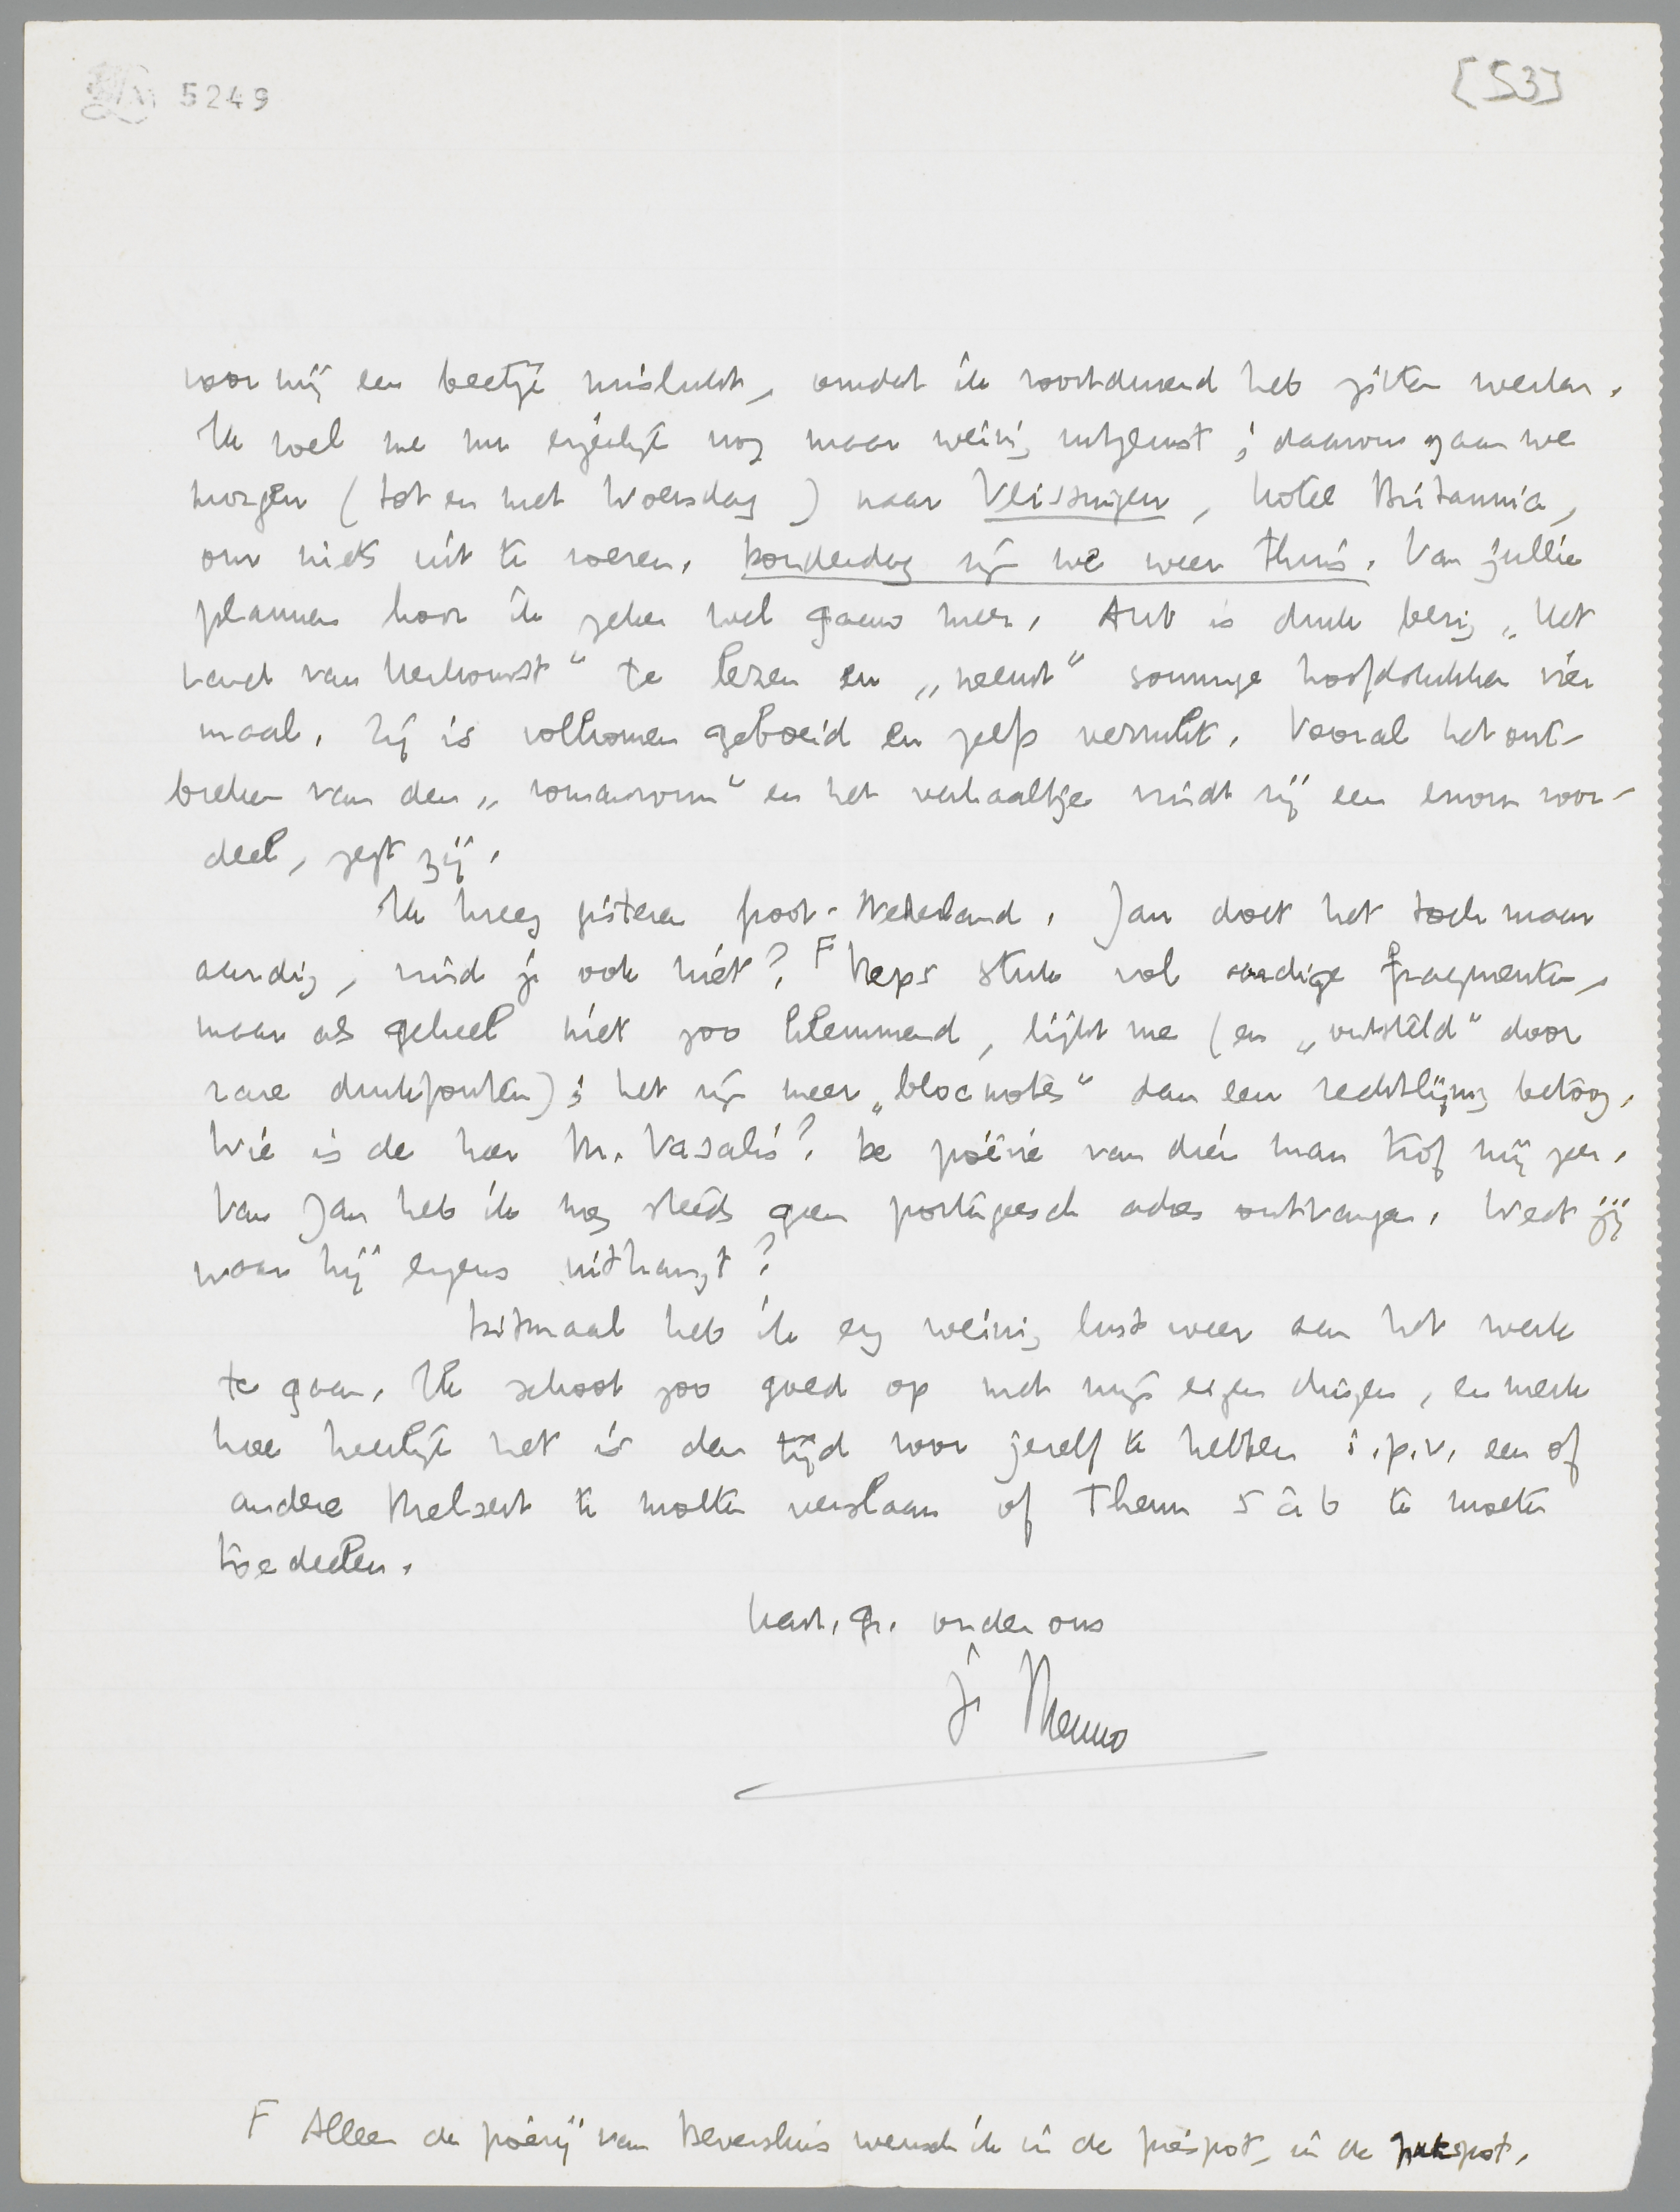 5249
[53]
voor mij een beetje mislukt, omdat ik voortdurend heb zitten werken.
Ik voel me nu eigenlijk nog maar weinig uitgerust; daarom gaan we
morgen (tot en met Woensdag) naar Vlissingen, hotel Britannia,
om niets uit te voeren. Donderdag zijn we weer thuis. Van jullie
plannen hoor ik zeker wel gauw meer. Ant is druk bezig „Het
Land van Herkomst“ te lezen en „neemt“ sommige hoofdstukken vier
maal. Zij is volkomen geboeid en zelfs verrukt. Vooral het ont-
breken van den „romanvorm“ en het verhaaltje vindt zij een enorm voor-
deel, zegt zij.
Ik kreeg gisteren Groot-Nederland. Jan doet het toch maar
aardig, vind je ook niet? F Heps stuk vol aardige fragmenten,
maar als geheel niet zoo klemmend, lijkt me (en „ontsteld“ door
rare drukfouten); het zijn meer „blocnotes“ dan een rechtlijnig betoog.
Wie is de heer M. Vasalis? De poëzie van dien man trof mij zeer.
Van Jan heb ik nog steeds geen portugeesch adres ontvangen. Weet jij
waar hij ergens uithangt?
Ditmaal heb ik erg weinig lust weer aan het werk
te gaan. Ik schoot zoo goed op met mijn eigen dingen, en merk
hoe heerlijk het is den tijd voor jezelf te hebben i.p.v. een of
andere Melsert te moeten verslaan of Them 5 à 6 te moeten
toedeelen.
hart. gr. onder ons
je Menno
F Alleen de poëzij van Beversluis wensch ik in de pispot, in de pukspot.